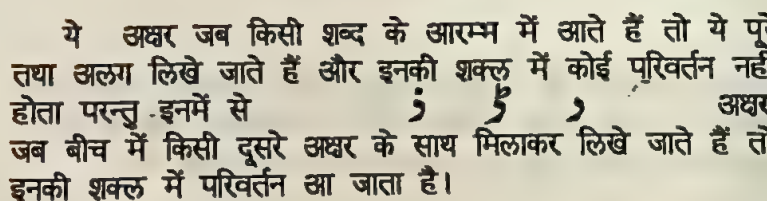 ये अक्षर जब किसी शब्द के आरम्भ में आते हैं तो ये पूरे
तथा अलग लिखे जाते हैं और इनकी शक्ल में कोई परिवर्तन नहीं
होता परन्तु इनमें से د ڈ ذ अक्षर
जब बीच में किसी दूसरे अक्षर के साथ मिलाकर लिखे जाते हैं तो
इनकी शक्ल में परिवर्तन आ जाता है।